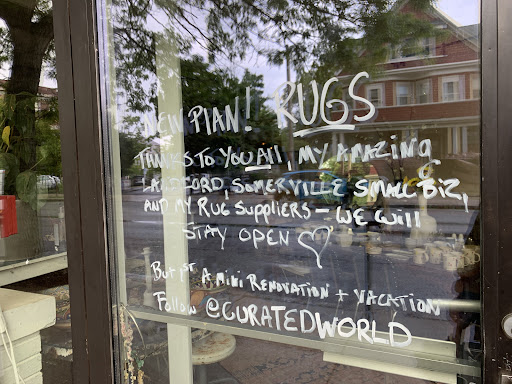 NEW PLAN! RUGS
THANKS TO YOU All, MY AMAZING
LANDLORD, SOMERVILLE SMALL BIZ,
AND MY RUG SUPPLIERS - WE WILL
STAY OPEN
BUT 1ST A MINI RENOVATION + VACATION
FOLLOW @CURATEDWORLD